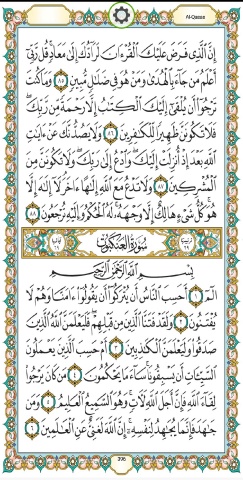 Al-Qasas
إِنَّ ٱلَّذِى فَرَضَ عَلَيْكَ ٱلْقُرْءَانَ لَرَآدُّكَ إِلَىٰ مَعَادٍ قُل رَّبِّىٓ
أَعْلَمُ مَن جَآءَ بِٱلْهُدَىٰ وَمَنْ هُوَ فِى ضَلَـٰلٍ مُّبِينٍ ٨٥ وَمَا كُنتَ
تَرْجُوٓا۟ أَن يُلْقَىٰٓ إِلَيْكَ ٱلْكِتَـٰبُ إِلَّا رَحْمَةً مِّن رَّبِّكَ
فَلَا تَكُونَنَّ ظَهِيرًا لِّلْكَـٰفِرِينَ ٨٦ وَلَا يَصُدُّنَّكَ عَنْ ءَايَـٰتِ
ٱللَّهِ بَعْدَ إِذْ أُنزِلَتْ إِلَيْكَ وَٱدْعُ إِلَىٰ رَبِّكَ وَلَا تَكُونَنَّ مِنَ
ٱلْمُشْرِكِينَ ٨٧ وَلَا تَدْعُ مَعَ ٱللَّهِ إِلَـٰهًا ءَاخَرَ لَآ إِلَـٰهَ إِلَّا
هُوَ كُلُّ شَىْءٍ هَالِكٌ إِلَّا وَجْهَهُۥ لَهُ ٱلْحُكْمُ وَإِلَيْهِ تُرْجَعُونَ ٨٨
سُورَةُ الْعَنْكَبُوتِ
بِسْمِ ٱللَّهِ ٱلرَّحْمَـٰنِ ٱلرَّحِيمِ
الٓمٓ ١ أَحَسِبَ ٱلنَّاسُ أَن يُتْرَكُوٓا۟ أَن يَقُولُوٓا۟ ءَامَنَّا وَهُمْ لَا
يُفْتَنُونَ ٢ وَلَقَدْ فَتَنَّا ٱلَّذِينَ مِن قَبْلِهِمْ فَلَيَعْلَمَنَّ ٱللَّهُ ٱلَّذِينَ
صَدَقُوا۟ وَلَيَعْلَمَنَّ ٱلْكَـٰذِبِينَ ٣ أَمْ حَسِبَ ٱلَّذِينَ يَعْمَلُونَ
ٱلسَّيِّـَٔاتِ أَن يَسْبِقُونَا سَآءَ مَا يَحْكُمُونَ ٤ مَن كَانَ يَرْجُوا۟
لِقَآءَ ٱللَّهِ فَإِنَّ أَجَلَ ٱللَّهِ لَـَٔاتٍ وَهُوَ ٱلسَّمِيعُ ٱلْعَلِيمُ ٥ وَمَن
جَـٰهَدَ فَإِنَّمَا يُجَـٰهِدُ لِنَفْسِهِۦٓ إِنَّ ٱللَّهَ لَغَنِىٌّ عَنِ ٱلْعَـٰلَمِينَ ٦
396